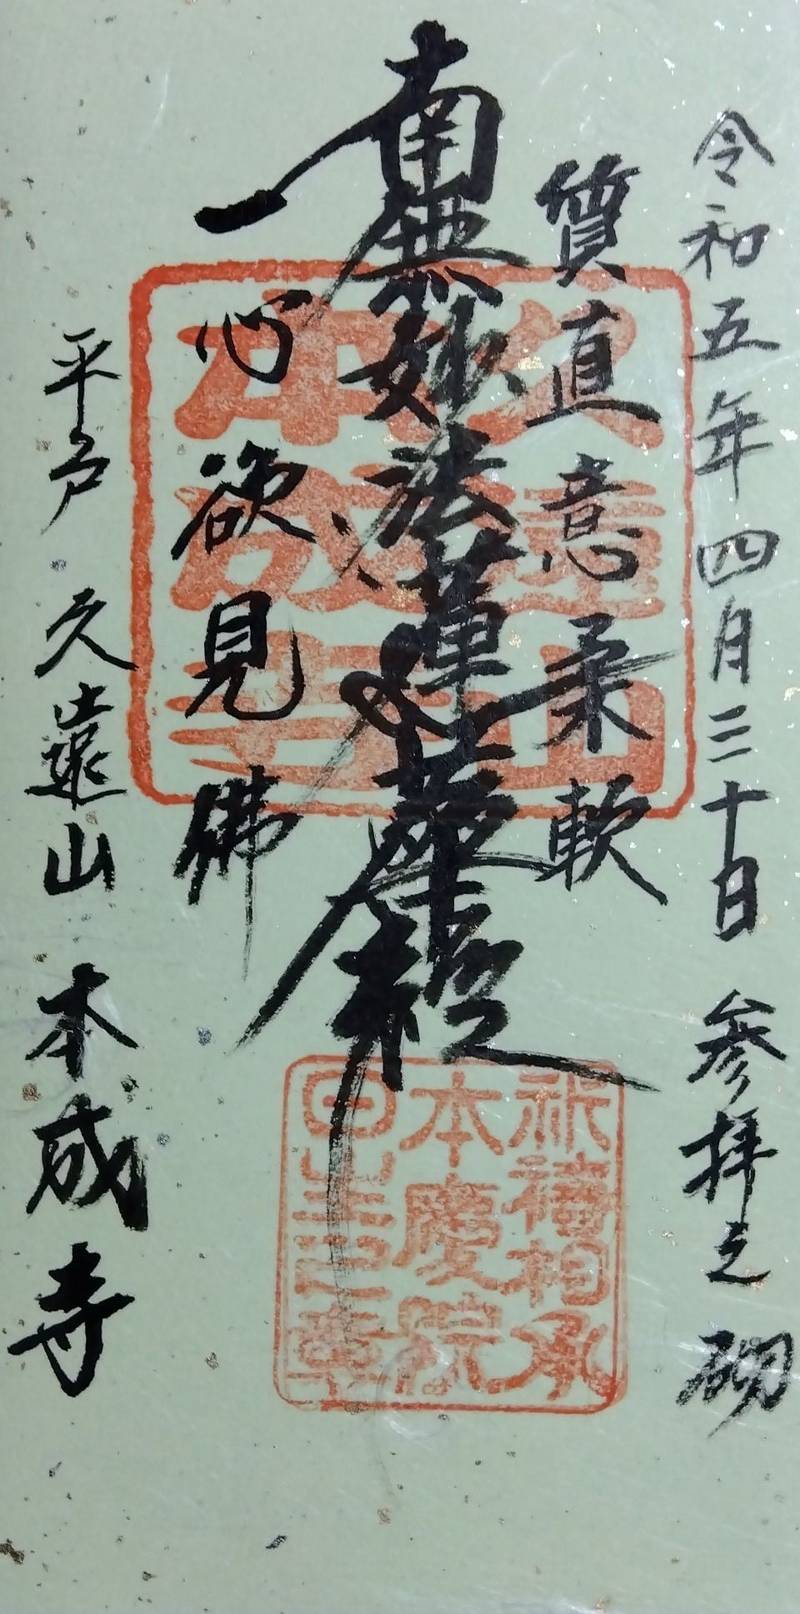 令和五年四月三十日 参拝之砌
質直意柔軟
南無妙法蓮華経
一心欲見佛
平戸 久遠山 本成寺
久遠山
本成寺
本慶院